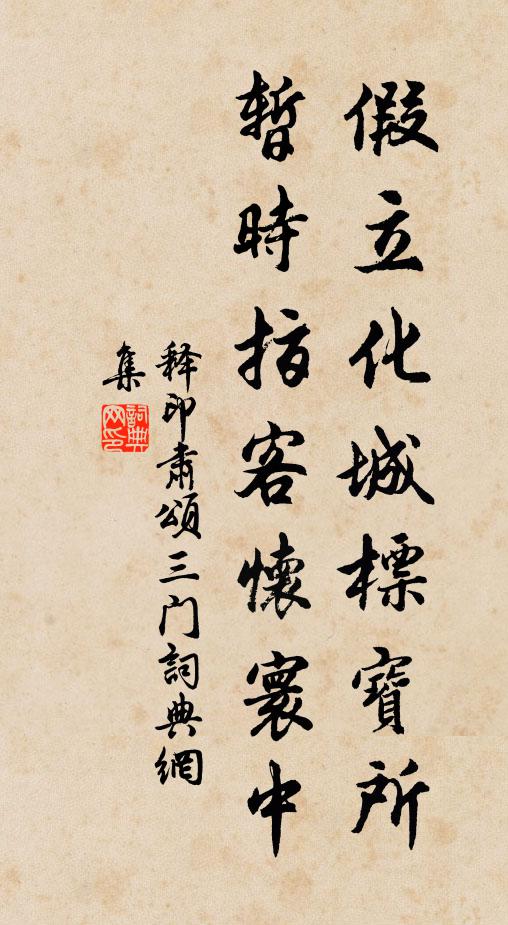 假立化城標寶所
暫時指客懷寰中
释印肃頌三门詞典網
集
詞典網印